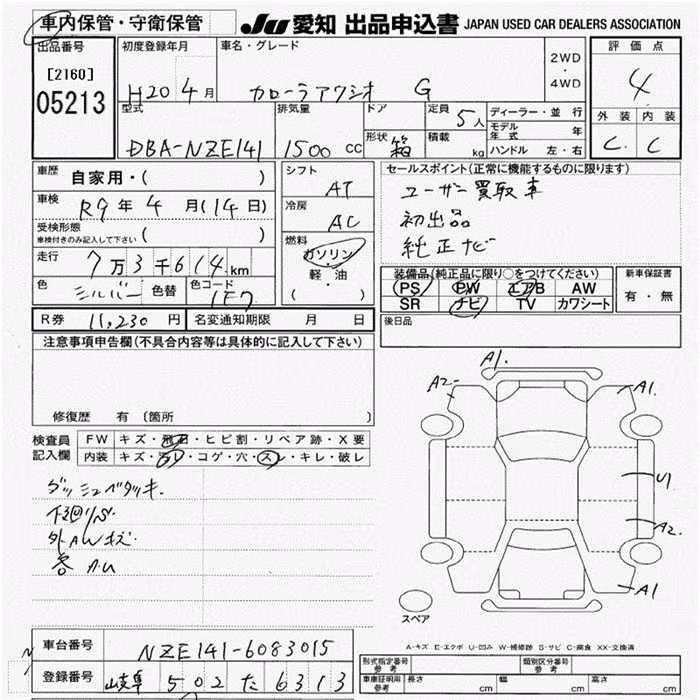 車内保管・守衛保管
JU 愛知 出品申込書 JAPAN USED CAR DEALERS ASSOCIATION
出品番号
[2160]
05213
初度登録年月
H20 4月
車名・グレード
カローラアクシオ G
2WD
・
4WD
評価点
4
外装 内装
C C
型式
DBA-NZE141
排気量
1500 CC
ドア
形状 箱
定員 5人
積載 kg
ディーラー・並行
モデル年式 年
ハンドル 左・右
車歴 自家用・( )
車検 R9年 4月(14日)
受検形態
車検付きのみ記入して下さい ( )
走行 7万3千614km
色 シルバー 色替
色コード 1F7
シフト AT
冷房 AC
燃料
ガソリン
・
軽・油
( )
セールスポイント(正常に機能するものに限ります)
ユーザー買取車
初出品
純正ナビ
装備品(純正品に限り○をつけてください)
PS PW エアB AW
SR ナビ TV カワシート
新車保証書
有・無
R券 11,230円 名変通知期限 月 日
後日品
注意事項申告欄(不具合内容等は具体的に記入して下さい)
修復歴 有 〔箇所 〕
検査員
記入欄
FW キズ・飛石・ヒビ割・リペア跡・X要
内装 キズ・汚レ・コゲ・穴・スレ・キレ・破レ
ダッシュベタツキ.
下廻りS.
外AWキズ.
各 AU
A1.
A2
A1.
U1
A2.
A1
スペア
A-キズ E-エクボ U-凹み W-補修跡 S-サビ C-腐食 XX-交換済
車台番号 NZE141-6083015
登録番号 岐阜 502 た 6313
形式指定番号
参考
類別区分番号
参考
車庫証明用
参考
長さ cm 幅 cm 高さ cm